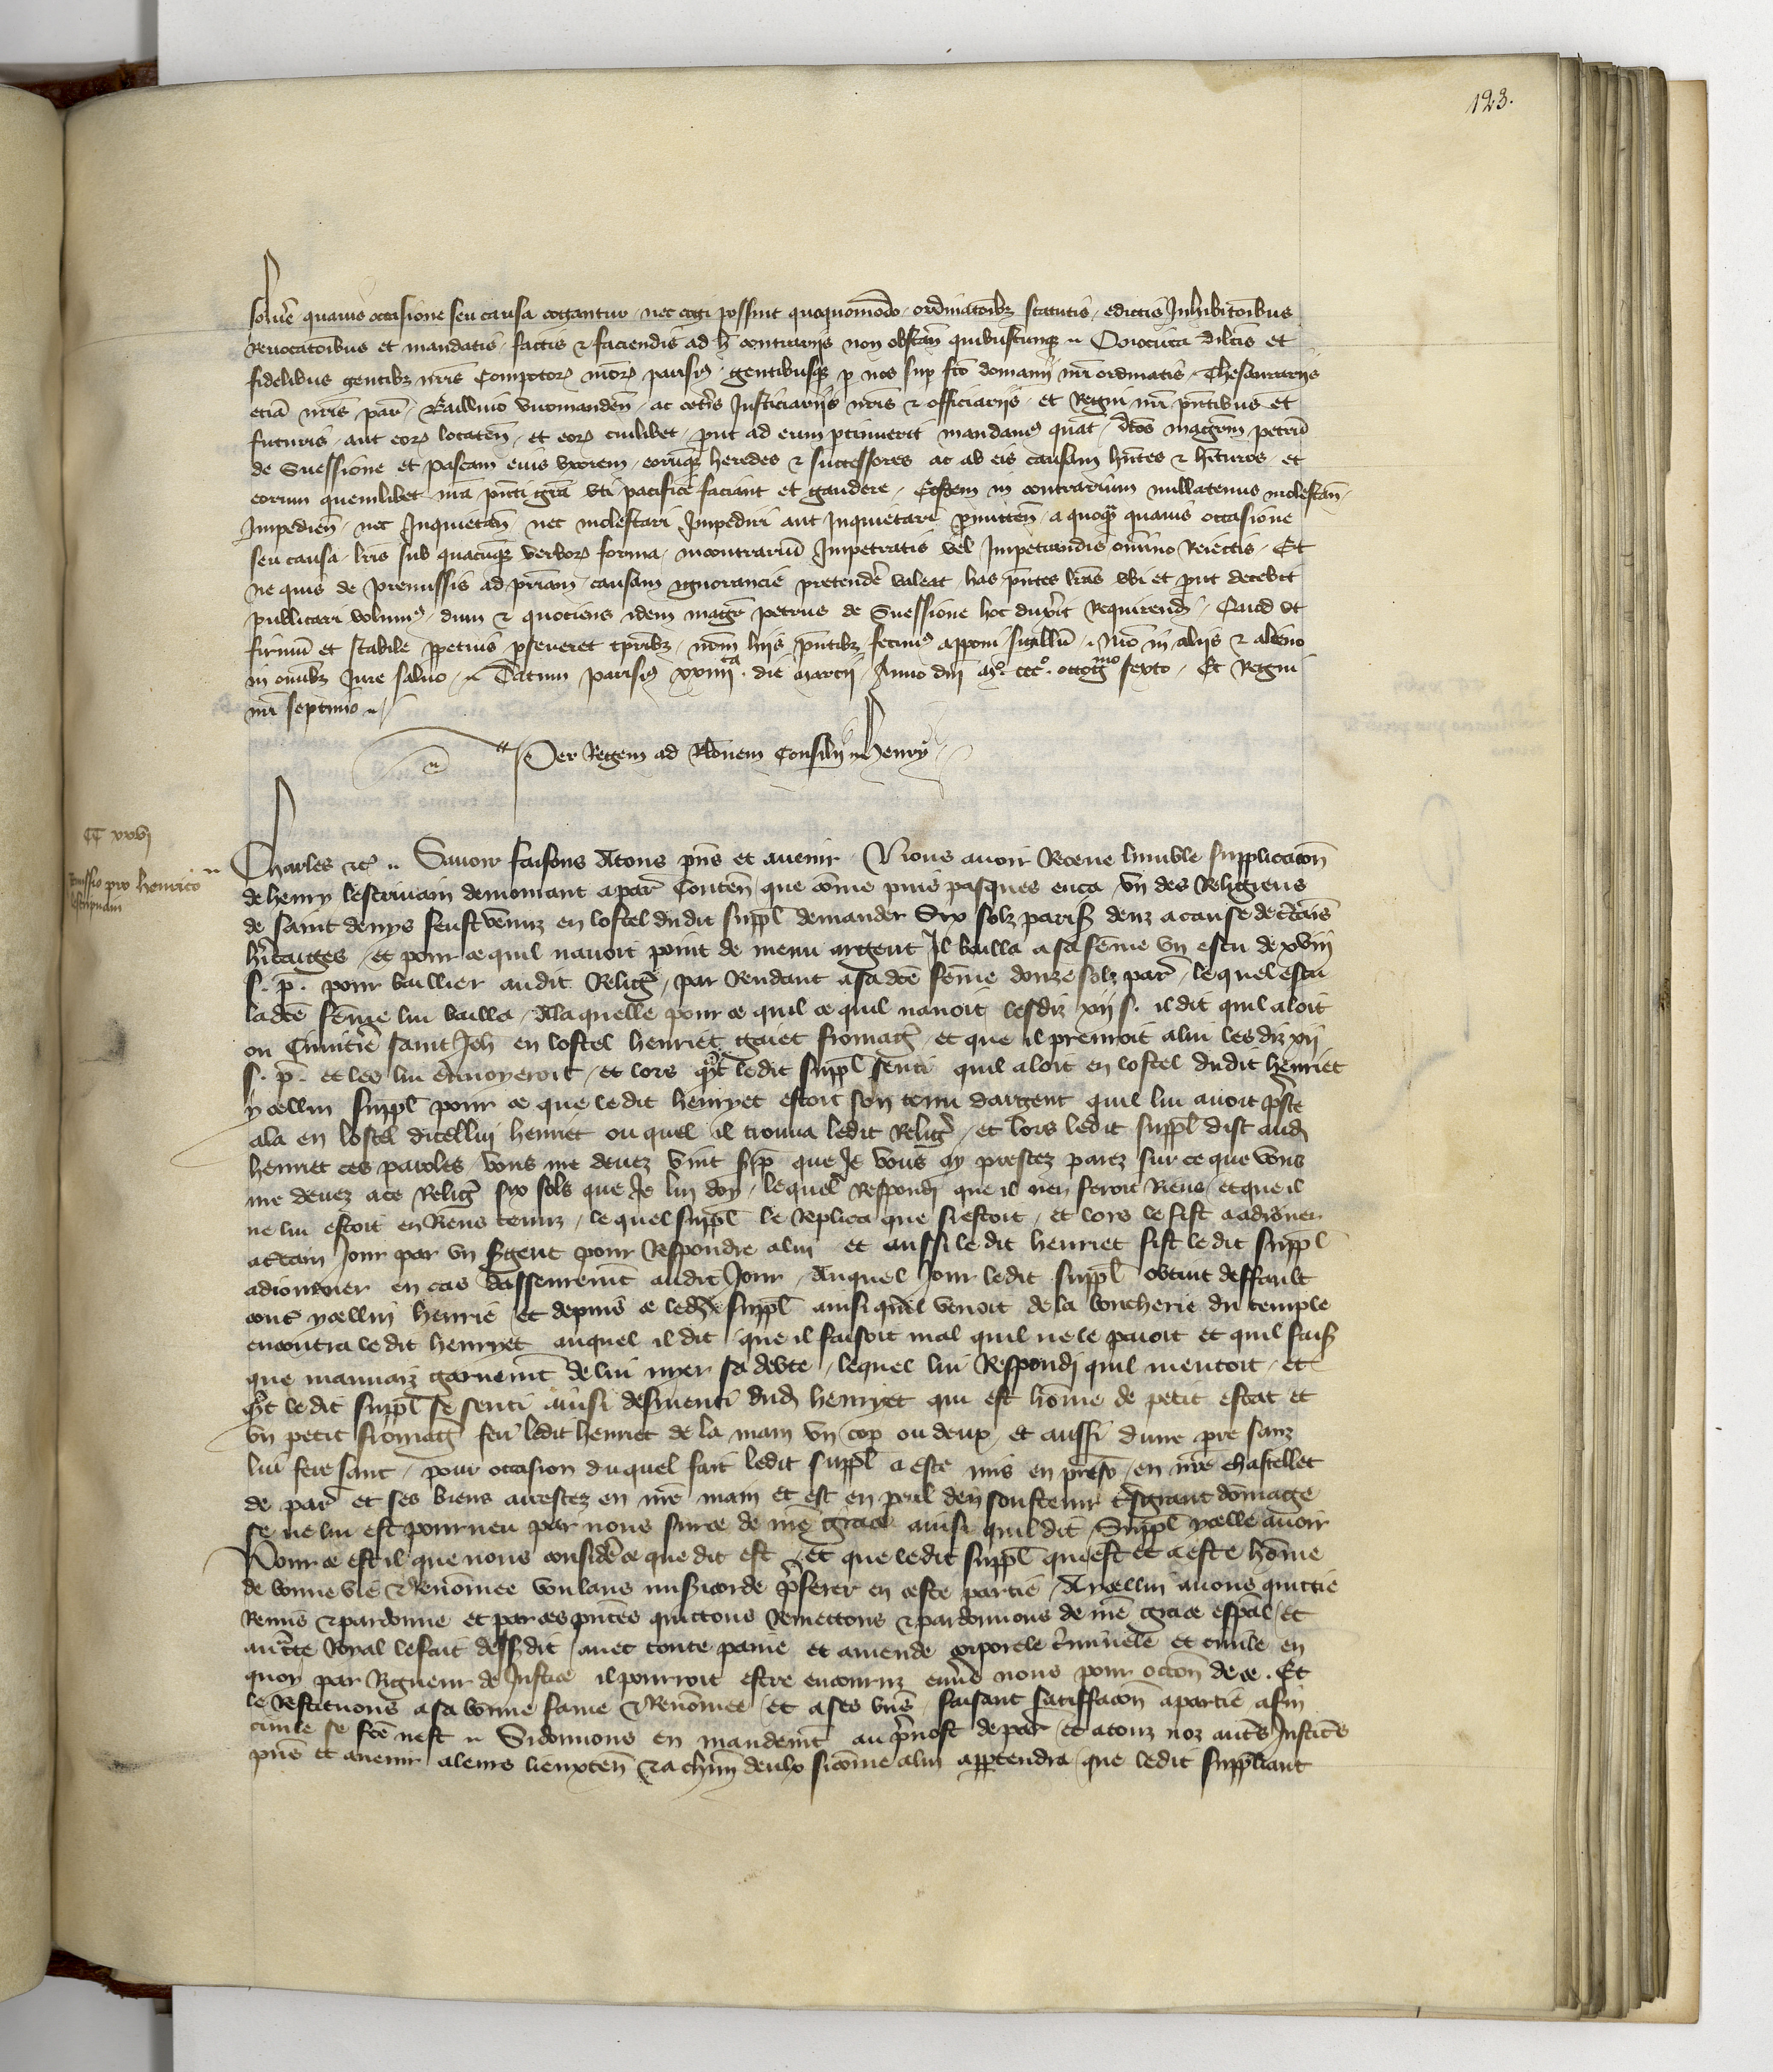 123.
solvere quavis occasione seu causa cogantur nec cogi possint quoquomodo. ordinatoibz statutis edictis Inhibitoibus
Revocatoibus et mandatis factis & faciendis ad h contrariis non obstan quibuscunqz dilcis et
fidelibus gentibz nris Compotor nror parisi gentibusqz p nos sup fco domanii nri ordinatis Thesaurariis
eciā nris par Baillivo viromanden ac ceteris Justiciariis nris & officiariis et Regni nri pntibus et
futuris aut eor locaten et eor cuilibet put ad eum ptinuerit mandanes quat dcos magrm petru
de Suessione et pascam eius uxorem eorumqz heredes & successores ac ab eis causam hntes & hituros et
eorum quemlibet nra pnti gra uti pacifice faciant et gaudere Eosdem in contrarium nullatenus molestan
Impedien nec Inquietan nec molestari Impediri aut Inquietari pmitten a quoqz quavis occasione
seu causa lris sub quacuqz verbor forma in contrariu Impetratis vel Impetrandis omnino Reiectis Et
ne quis de premissis ad priam causam ignorancie pretende valeat has pntes lras ubi et put decebit
publicari volums dum & quociens idem magr petrus de Suessione hoc duxit Requirend Quod ut
firmu et stabile ppetuis pseveret tpribz nrm hiis pntibz fecims apponi sigillu Nro in aliis & alieno
in omibz Jure salvo Datum parisi xxiiii ta die marcii Anno dni mo ccco octogmo sexto Et Regni
nri septimo
Per Regem ad Rlonem Consilii Henry
CC xxvi
Remissio pro henrico
lescripvain
Charles etc Savoir faisons Atous pns et avenir Nous avoir Receue humble supplicacon
de henry lescripvain demourant a par Conten que cōme puis pasques enca un des Religieus
de saint denys feust venuz en lostel dudit suppl demander Six solz paris deuz a cause de ctains
hitaiges et pour ce quil navoit point de menu argent Il bailla a sa fēme un escu de xviii
s. p. pour baillier audit Religx par Rendant a sa dce fēme douze solz par lequel escu
ladce fēme lui bailla Alaquelle pour ce quil ce quil navoit lesdiz xii s. il dit quil aloit
ou Cimitiere saint Jeh en lostel henriet gaiet fromagr et que il prenroit a lui les diz xii
s. p. et les lui envoyeroit et lors qnt ledit suppl senti quil aloit en lostel dudit henriet
ycellui suppl pour ce que ledit henryet estoit son tenu dargent quil lui avoit preste
ala en lostel dicellui henriet ou quel il trouva ledit Religx et lors ledit suppl dist aud
henriet ces paroles vous me devez vint s p que Je vous ay prestez paiez sur ce que vous
me devez a ce Religx six sols que Je lui doy lequel Respondi que il nen feroit Riens et que il
ne lui estoit en Riens tenuz lequel suppl le Replica que si estoit et lors le fist adiorner
a ctain Jour par un sgent pour Respondre a lui et aussi ledit henriet fist ledit suppl
adiourner en cas dasseurement audit Jour Auquel Jour ledit suppl obtint deffault
conte ycellui henrie et depuis ce ledit suppl ainsi quil venoit de la boucherie du temple
encontra ledit henryet auquel il dit que il faisoit mal quil ne le paioit et quil fais
que mauvaiz garnemt de lui nyer sa debte lequel lui Respondi quil mentoit et
qnt ledit suppl se senti ainsi desmenti dud henryet qui est hōme de petit estat et
un petit fromagr feri ledit henriet de la main un cop ou deux et aussi dune pre sanz
lui fere sanc pour occasion duquel fait ledit suppl a este mis en prison en nre chastellet
de par et ses biens arrestez en nre main et est en peril den soustenir tresgrant dōmage
se ne lui est pourveu par nous sur ce de nre grace ainsi quil dit Suppl ycelle avoir
Pour ce est il que nous consideré ce que dit est et que ledit suppl qui est et a este hōme
de bonne vie & Renōmee voulans misericorde preferer en ceste partie A ycellui avons quictie
Remis & pardonne et par ces pntes quictons Remettons & pardonnons de nre grace esppal et
auctte Royal le fait dessusdit avec toute paine et amende corporele criminele et civile en
quoy par Rigueur de Justice il pourroit estre encouruz envs nous pour occon de ce. Et
le Restituons a sa bonne fame & Renōmee et a ses bns faisant satiffacon a partie a fin
civile se fce nest Si donnons en mandemt au prevost de par et a touz noz autres Justices
pns et avenir a leurs lieuxten & a chm deulx si cōme a lui appartendra que ledit suppliant